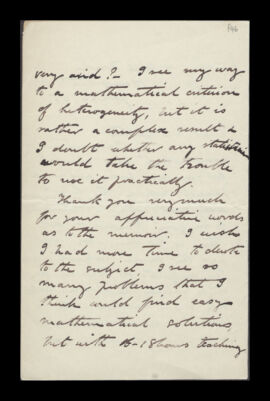 very acid?— I see my way
to a mathematical criterion
of heterogeneity, but it is
rather a complex result &
I doubt whether any statistician
would take the trouble
to use it practically.
Thank you very much
for your appreciative words
as to the memoir. I wish
I had more time to devote
to the subject. I see so
many problems that I
think would find easy
mathematical solutions,
but with 16-18 hours teaching